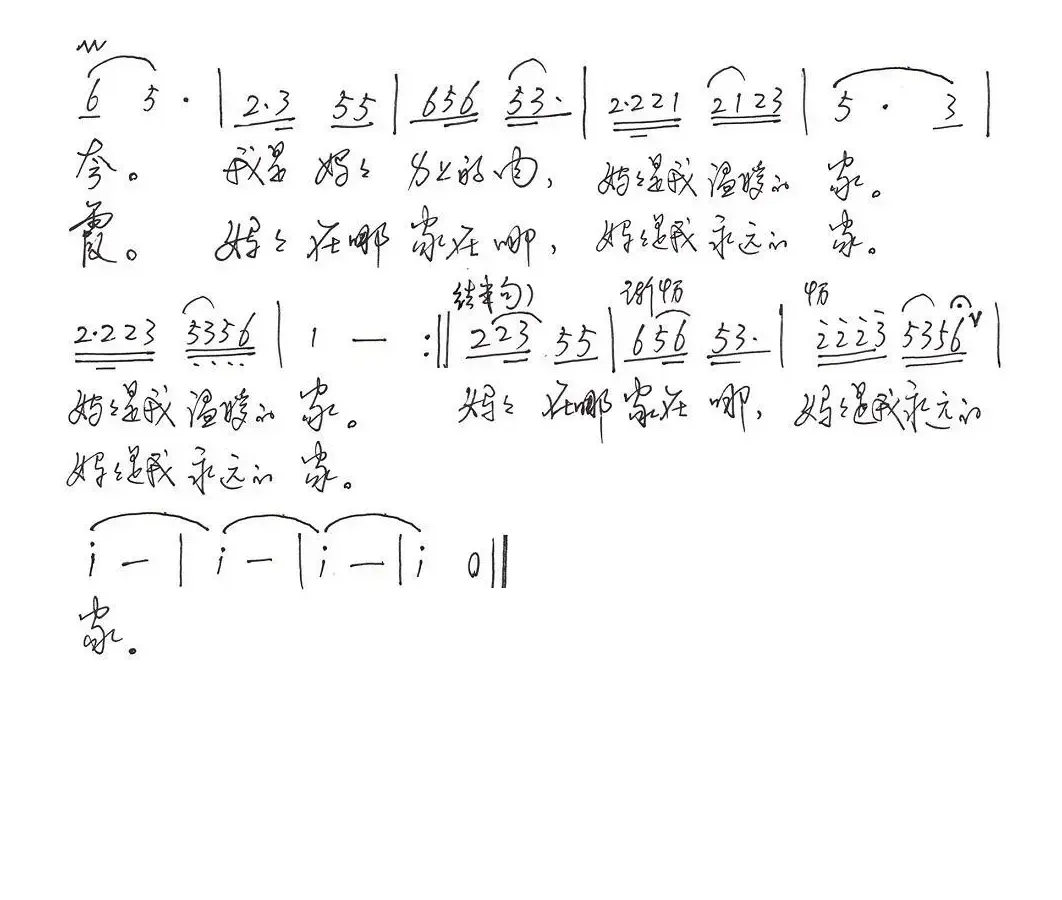 6 5 · | 2·3 55 | 656 53· | 2·221 2123 | 5 · 3 |
我是 妈々 身上的肉, 妈々是我 温暖的 家。
霞。 妈々 在哪 家在哪, 妈々是我 永远的 家。
结束句) 渐慢
2·223 5356 | 1 — :‖ 223 55 | 656 53· | 2223 5356 |
妈々是我 温暖的 家。 妈々 在哪 家在 哪, 妈々是我永远的
妈々是我 永远的 家。
i — | i — | i — | i 0 ‖
家。